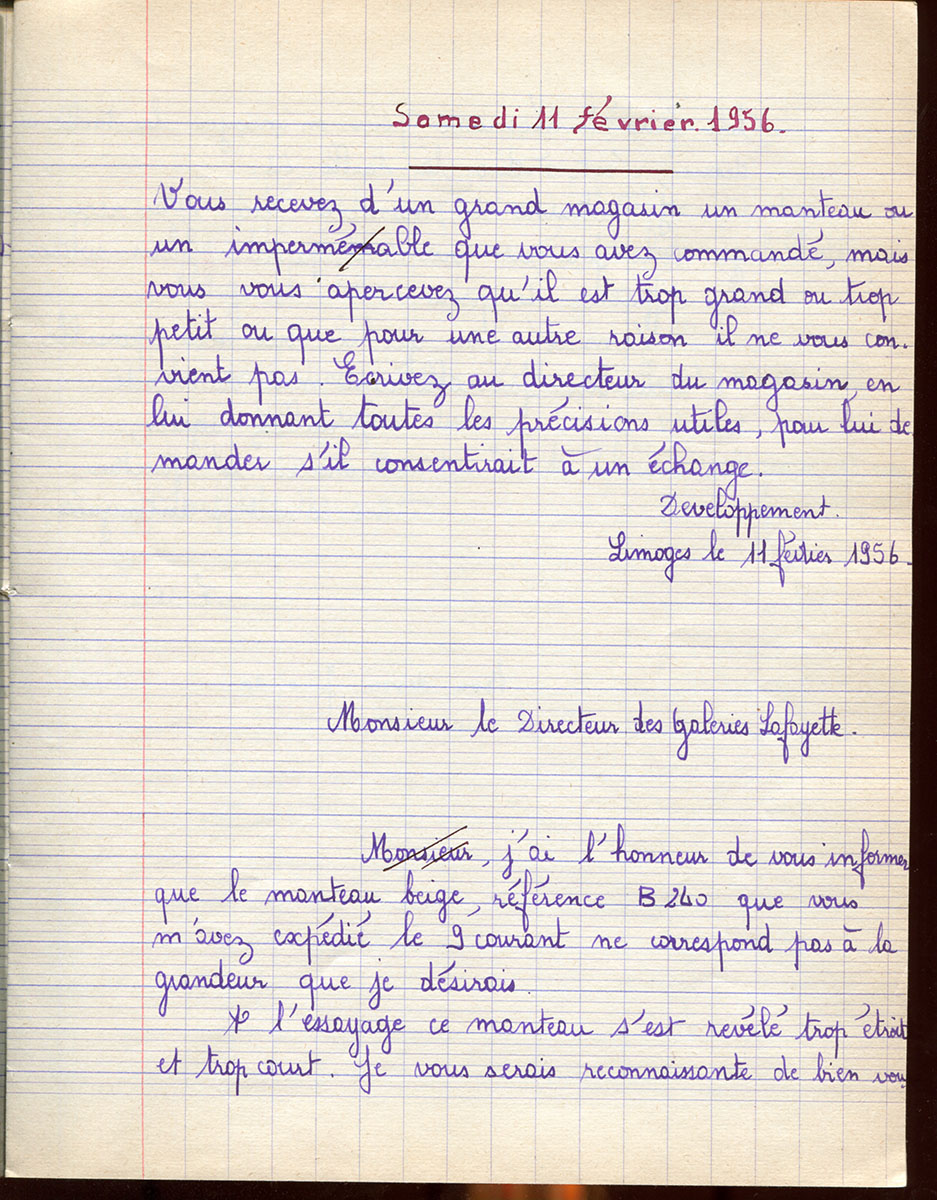 Samedi 11 février. 1956.
Vous recevez d'un grand magasin un manteau ou
un imperméable que vous avez commandé, mais
vous vous apercevez qu'il est trop grand ou trop
petit ou que pour une autre raison il ne vous con.
vient pas. Ecrivez au directeur du magasin, en
lui donnant toutes les précisions utiles, pour lui de
mander s'il consentirait à un échange.
Developpement.
Limoges le 11 février 1956.
Monsieur le Directeur des Galeries Lafayette.
Monsieur, j'ai l'honneur de vous informer
que le manteau beige, référence B 240 que vous
m'avez expédié le 9 courant ne correspond pas à la
grandeur que je désirais.
A l'essayage ce manteau s'est revélé trop étroit
et trop court. Je vous serais reconnaissante de bien vou